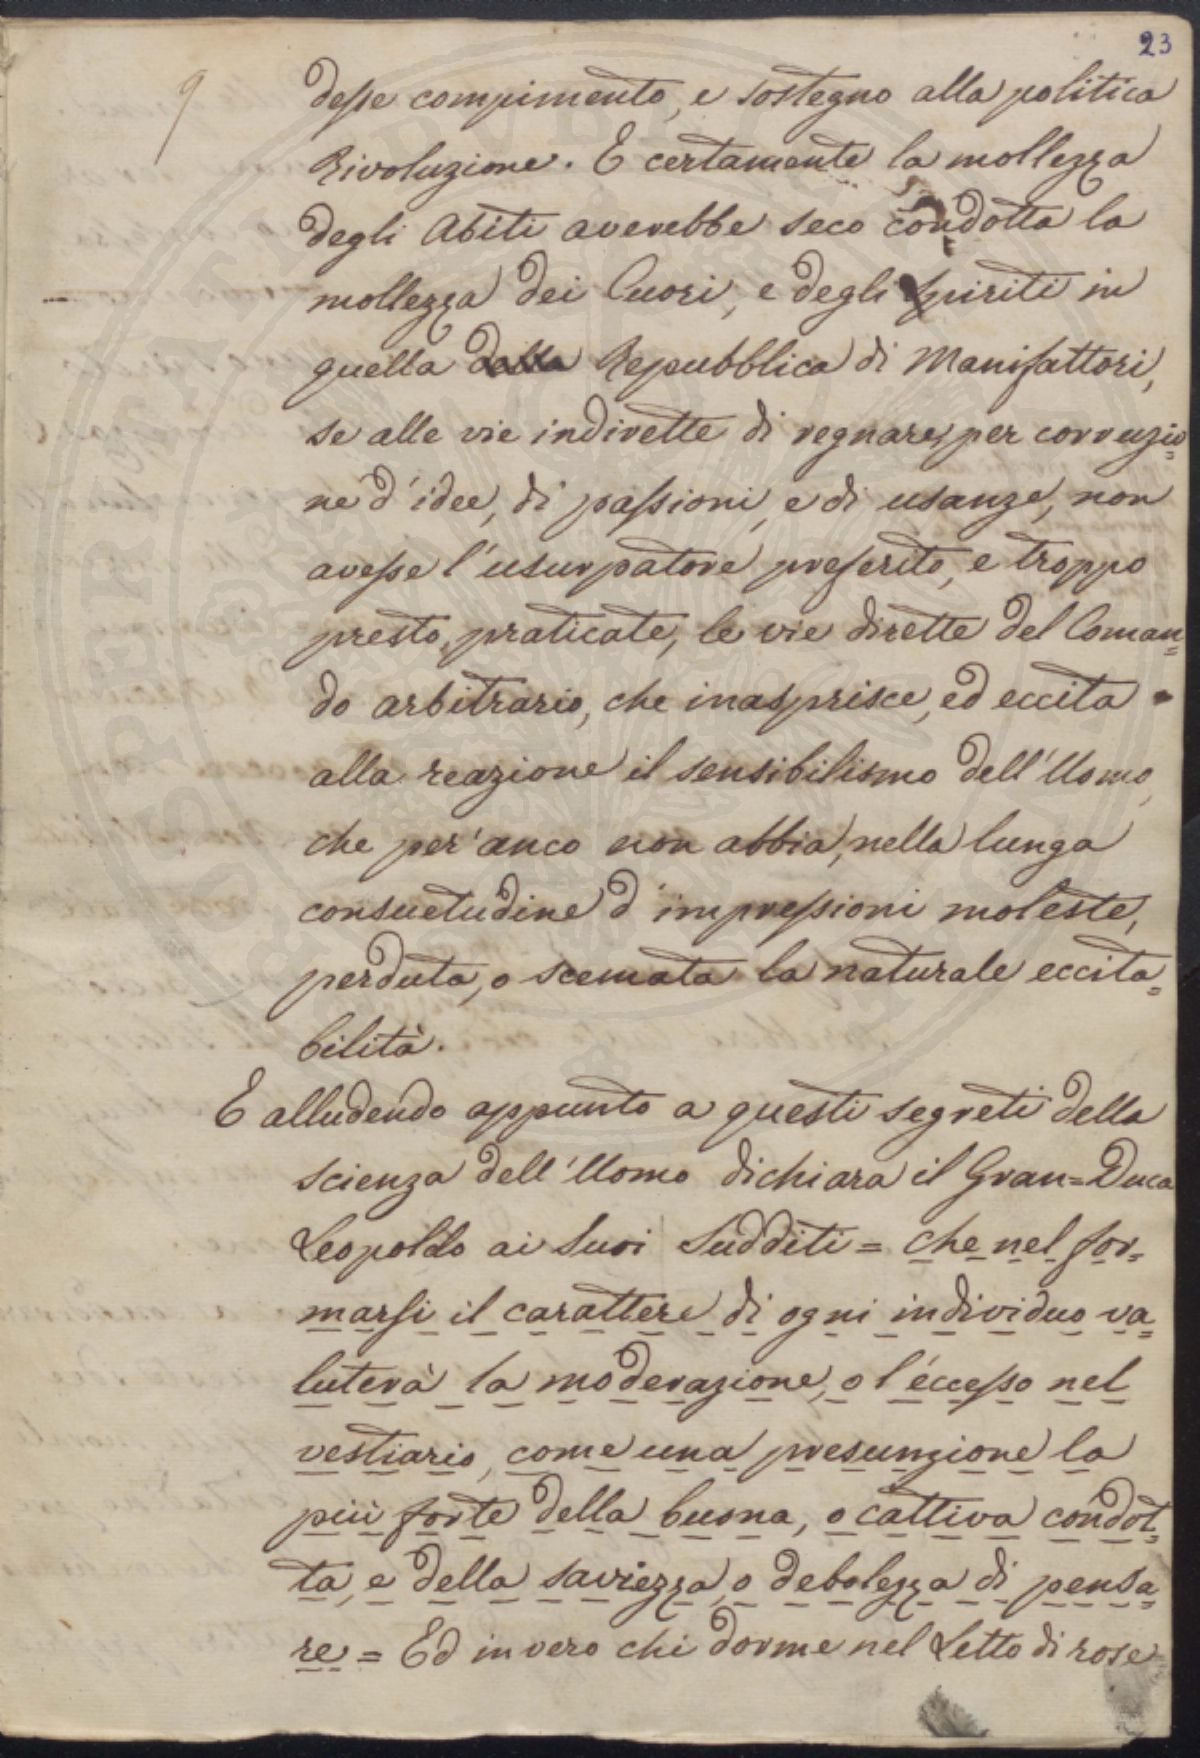 23
9
desse compimento, e sostegno alla politica
Rivoluzione. E certamente la mollezza
degli Abiti averebbe seco condotta la
mollezza dei Cuori, e degli Spiriti in
quella della Repubblica di Manifattori,
se alle vie indirette di regnare, per corruzio=
ne d'idee, di passioni, e di usanze, non
avesse l'usurpatore preferito, e troppo
presto, praticate, le vie dirette del Coman=
do arbitrario, che inasprisce, ed eccita
alla reazione il sensibilismo dell'Uomo,
che per'anco non abbia, nella lunga
consuetudine d'impressioni moleste,
perduta, o scemata la naturale eccita=
bilità.
E alludendo appunto a questi segreti della
scienza dell'Uomo dichiara il Gran=Duca
Leopoldo ai Suoi Sudditi = che nel for=
marsi il carattere di ogni individuo va=
luterà la moderazione, o l'eccesso nel
vestiario, come una presunzione la
più forte della buona, o cattiva condot=
ta, e della saviezza, o debolezza di pensa=
re = Ed in vero chi dorme nel Letto di rose
SIGILLUM REIPUBLICAE